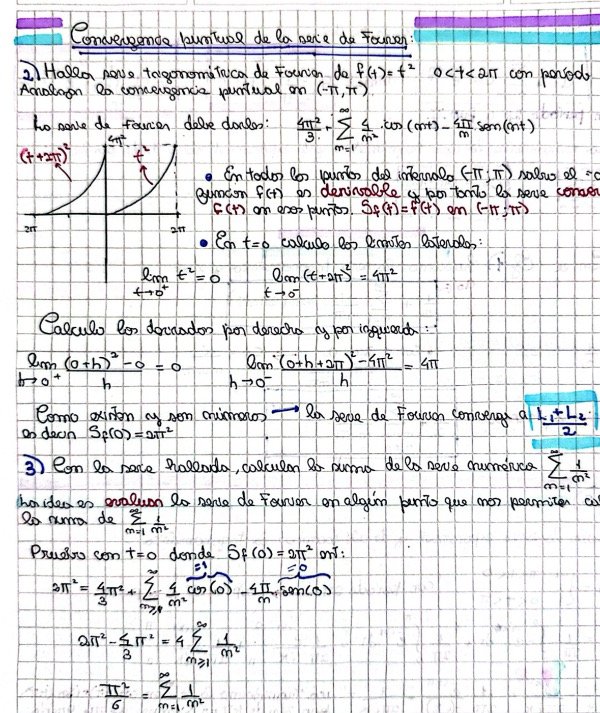 Convergencia puntual de la serie de Fourier:
2) Hallar serie trigonométrica de Fourier de f(t)=t² 0<t<2π con período
Analizar la convergencia puntual en (-π,π)
La serie de Fourier debe darles: 4π²/3 + ∑_{n=1}^{∞} 4/n² cos(nt) - 4π/n sen(nt)
(t+2π)² 4π² t²
2π 2π
• En todos los puntos del intervalo (-π;π) salvo el
función f(t) es derivable y por tanto la serie conver
f(t) en esos puntos. Sf(t)=f(t) en (-π;π)
• En t=0 calculo los límites laterales:
lim_{t→0⁺} t² = 0 lim_{t→0⁻} (t+2π)² = 4π²
Calculo las derivadas por derecha y por izquierda:
lim_{h→0⁺} ((0+h)²-0)/h = 0 lim_{h→0⁻} ((0+h+2π)²-4π²)/h = 4π
Como existen y son números → la serie de Fourier converge a (L₁+L₂)/2
es decir Sf(0)=2π²
3) Con la serie hallada, calcular la suma de la serie numérica ∑_{n=1}^{∞} 1/n²
La idea es evaluar la serie de Fourier en algún punto que nos permita cal
la suma de ∑_{n=1}^{∞} 1/n²
Pruebo con t=0 donde Sf(0)=2π²
=1 =0
2π² = 4/3 π² + ∑_{n≥1}^{∞} 4/n² cos(0) - 4π/n sen(0)
2π² - 4/3 π² = 4 ∑_{n≥1}^{∞} 1/n²
π²/6 = ∑_{n=1}^{∞} 1/n²